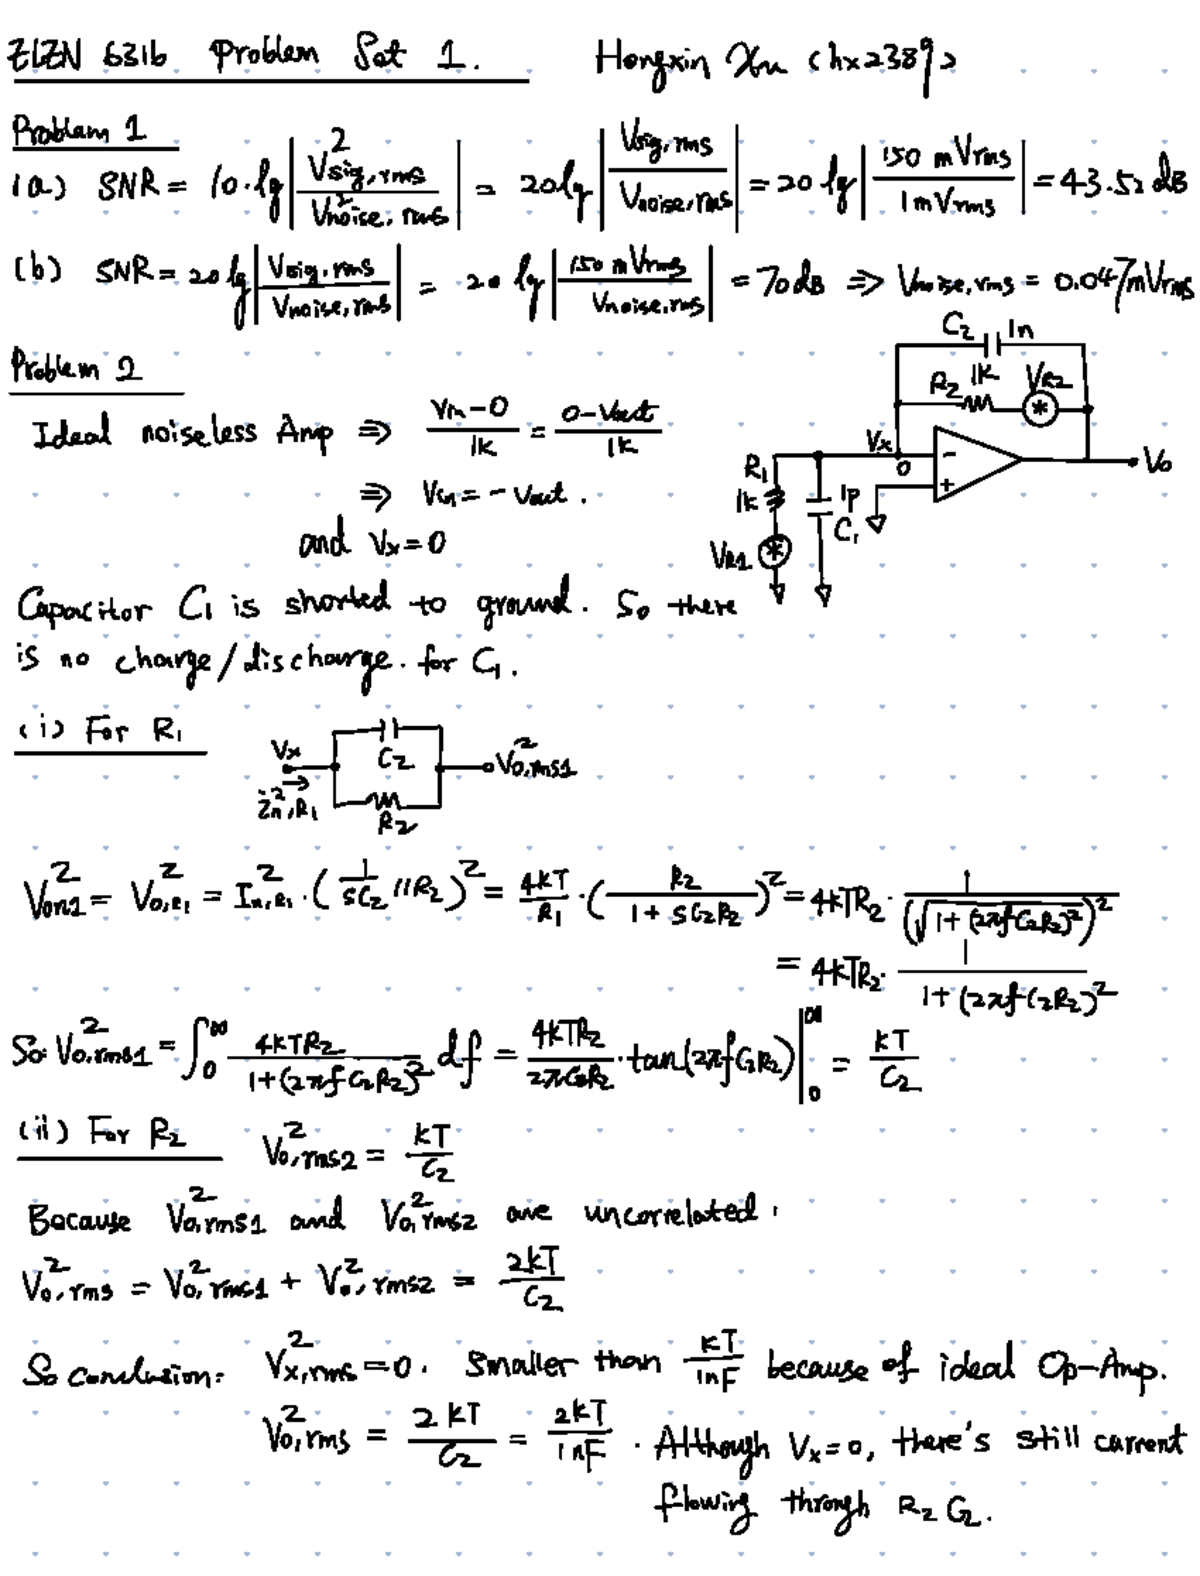 ELEN 6316 Problem Set 1. Hongxin Xu (hx2389)
Problem 1
(a) SNR = 10·lg|V²sig,rms / V²noise,rms| = 20lg|Vsig,rms / Vnoise,rms| = 20 lg|150 mVrms / 1mVrms| = 43.52 dB
(b) SNR = 20 lg|Vsig,rms / Vnoise,rms| = 20 lg|150 mVrms / Vnoise,rms| = 70dB ⇒ Vnoise,rms = 0.047mVrms
Problem 2
C2 1n
R2 1K VR2
Ideal noiseless Amp ⇒ (Vin-0)/1K = (0-Vout)/1K
Vx 0 - + Vo
R1 1K 1P C1
⇒ Vin = - Vout.
and Vx = 0
VR1
Capacitor C1 is shorted to ground. So there
is no charge/discharge. for C1.
(i) For R1
Vx C2 V²o,rms1
i²n,R1 R2
V²on1 = V²o,R1 = I²n,R1 · (1/sC2 // R2)² = 4kT/R1 · (R2 / (1+sC2R2))² = 4kTR2 · 1/(√(1+(2πfC2R2)²))²
= 4kTR2 · 1/(1+(2πfC2R2)²)
So V²o,rms1 = ∫₀^∞ 4kTR2/(1+(2πfC2R2)²) df = 4kTR2/(2πC2R2) · tan(2πfC2R2)|₀^∞ = kT/C2
(ii) For R2 V²o,rms2 = kT/C2
Because V²o,rms1 and V²o,rms2 are uncorrelated.
V²o,rms = V²o,rms1 + V²o,rms2 = 2kT/C2
So conclusion: V²x,rms = 0. Smaller than kT/1nF because of ideal Op-Amp.
V²o,rms = 2kT/C2 = 2kT/1nF. Although Vx=0, there's still current
flowing through R2 C2.